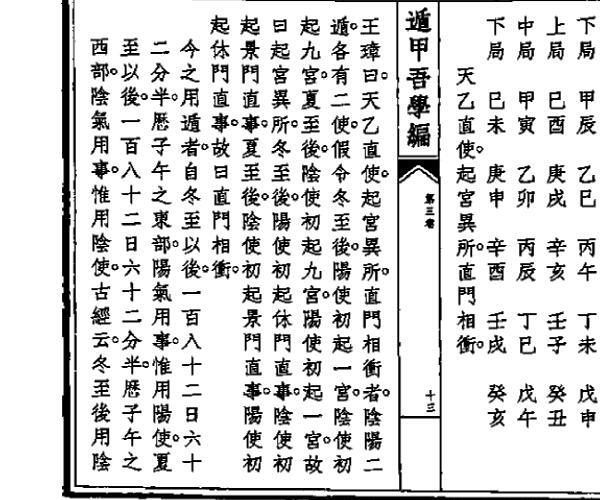 下局　甲辰　乙巳　丙午　丁未　戊申
上局　巳酉　庚戌　辛亥　壬子　癸丑
中局　甲寅　乙卯　丙辰　丁巳　戊午
下局　巳未　庚申　辛酉　壬戌　癸亥
天乙直使。起宮異所。直門相衝。
遁甲吾學編
第三卷
十三
王璋曰。天乙直使。起宮異所。直門相衝者。陰陽二
遁。各有二使。假令冬至後。陽使初起一宮。陰使初
起九宮。夏至後。陰使初起九宮。陽使初起一宮。故
曰起宮異所。冬至後。陽使初起休門直事。陰使初
起景門直事。夏至後。陰使初起景門直事。陽使初
起休門直事。故曰直門相衝。
今之用遁者。自冬至以後。一百八十二日六十
二分半。曆子午之東部。陽氣用事。惟用陽使。夏
至以後。一百八十二日六十二分半。曆子午之
西部。陰氣用事。惟用陰使。古經云。冬至後用陰